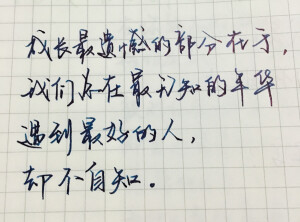 成长最遗憾的部分在于，
我们总在最无知的年华
遇到最好的人，
却不自知。